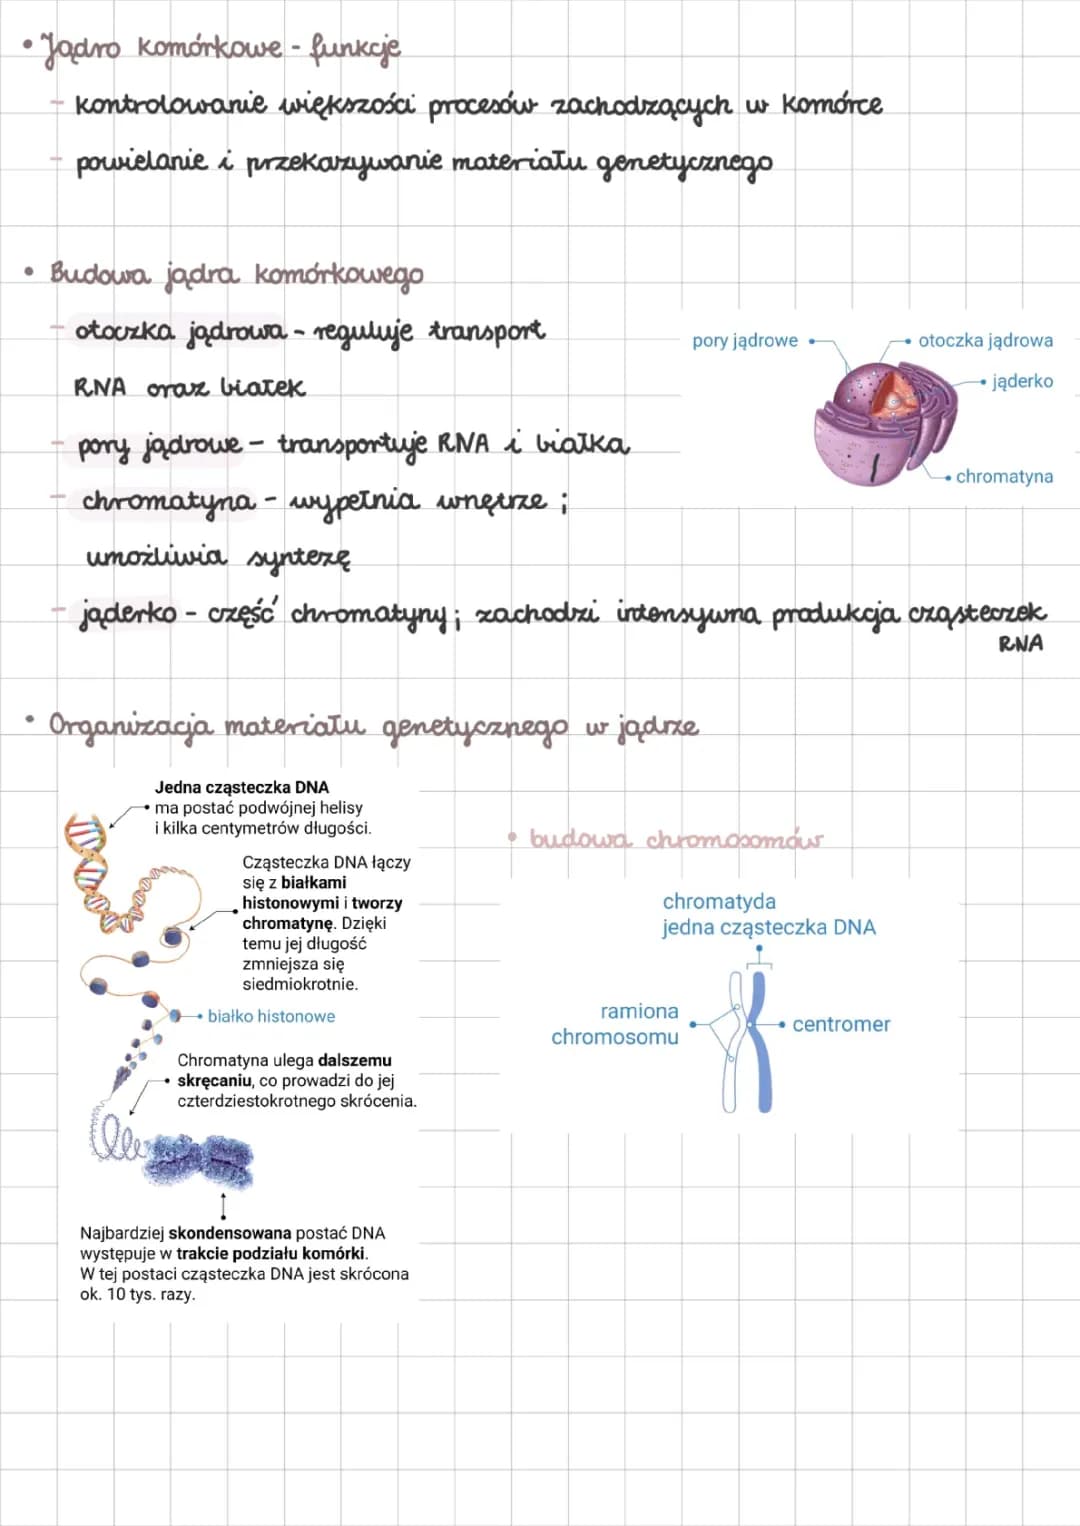 • Jądro komórkowe - funkcje
- kontrolowanie większości procesów zachodzących w komórce
- powielanie i przekazywanie materiału genetycznego
• Budowa jądra komórkowego
- otoczka jądrowa - reguluje transport
RNA oraz białek
- pory jądrowe - transportuje RNA i białka
- chromatyna - wypełnia wnętrze ;
umożliwia syntezę
- jąderko - część chromatyny ; zachodzi intensywna produkcja cząsteczek
RNA
pory jądrowe
otoczka jądrowa
jąderko
chromatyna
• Organizacja materiału genetycznego w jądrze
Jedna cząsteczka DNA
ma postać podwójnej helisy
i kilka centymetrów długości.
Cząsteczka DNA łączy
się z białkami
histonowymi i tworzy
chromatynę. Dzięki
temu jej długość
zmniejsza się
siedmiokrotnie.
białko histonowe
Chromatyna ulega dalszemu
skręcaniu, co prowadzi do jej
czterdziestokrotnego skrócenia.
Najbardziej skondensowana postać DNA
występuje w trakcie podziału komórki.
W tej postaci cząsteczka DNA jest skrócona
ok. 10 tys. razy.
• budowa chromosomów
chromatyda
jedna cząsteczka DNA
ramiona
chromosomu
centromer